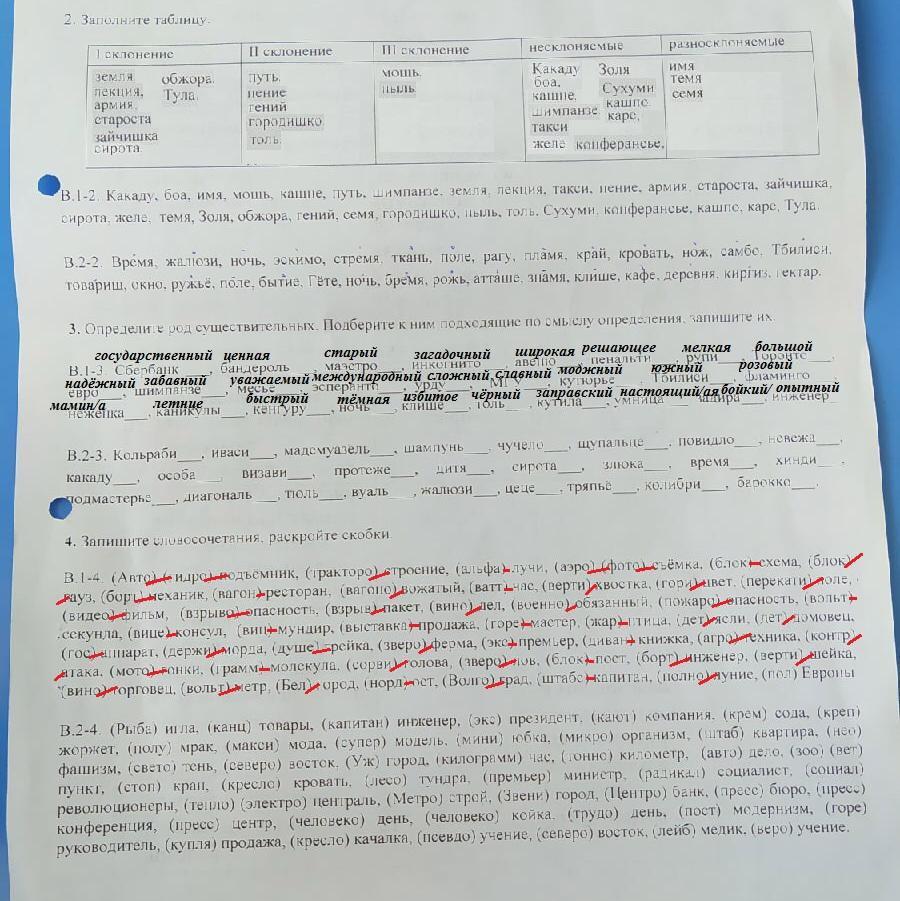 2. Заполните таблицу.
I склонение II склонение III склонение несклоняемые разносклоняемые
земля обжора. путь. мошь. Какаду Золя имя
лекция, Тула. пение пыль боа, Сухуми темя
армия, гений кашпе, кашпо семя
староста городишко шимпанзе каре,
зайчишка толь такси
сирота. желе конферансье,
В.1-2. Какаду, боа, имя, мошь, кашпе, путь, шимпанзе, земля, лекция, такси, пение, армия, староста, зайчишка,
сирота, желе, темя, Золя, обжора, гений, семя, городишко, пыль, толь, Сухуми, конферансье, кашпо, каре, Тула.
В.2-2. Время, жалюзи, ночь, эскимо, стремя, ткань, поле, рагу, пламя, край, кровать, нож, самбо, Тбилиси,
товарищ, окно, ружьё, поле, бытие, Гёте, ночь, бремя, рожь, атташе, знамя, клише, кафе, деревня, киргиз, гектар.
3. Определите род существительных. Подберите к ним подходящие по смыслу определения, запишите их.
государственный ценная старый загадочный широкая решающее мелкая большой
В.1-3 Сбербанк___, бандероль___, маэстро___, инкогнито___, авеню___, пенальти___, рупи___, Торонто___,
надёжный забавный уважаемый международный сложный славный модный южный розовый
евро___, шимпанзе___, месье___, эсперанто___, урду___, МГУ___, кутюрье___, Тбилиси___, фламинго___,
мамин/а летние быстрый тёмная избитое чёрный заправский настоящий/ая бойкий/ опытный
неженка___, каникулы___, кенгуру___, ночь___, клише___, толь___, кутила___, умница___, задира___, инженер
В.2-3. Кольраби___, иваси___, мадемуазель___, шампунь___, чучело___, щупальце___, повидло___, невежа___,
какаду___, особа___ визави___, протеже___, дитя___, сирота___, злюка___, время___, хинди___,
подмастерье___, диагональ___, тюль___, вуаль___, жалюзи___, цеце___, тряпьё___, колибри___, барокко___.
4. Запишите словосочетания, раскройте скобки.
В.1-4. (Авто) (гидро) подъёмник, (тракторо) строение, (альфа) лучи, (аэро) (фото) съёмка, (блок) схема, (блок)
гауз, (борт) механик, (вагон) ресторан, (вагоно) вожатый, (ватт) час, (верти) хвостка, (гори) цвет, (перекати) поле,
(видео) фильм, (взрыво) опасность, (взрыв) пакет, (вино) дел, (военно) обязанный, (пожаро) опасность, (вольт)
секунда, (вице) консул, (виц) мундир, (выставка) продажа, (горе) мастер, (жар) птица, (дет) ясли, (дет) домовец,
(гос) аппарат, (держи) морда, (душе) грейка, (зверо) ферма, (экс) премьер, (диван) книжка, (агро) техника, (контр)
атака, (мото) гонки, (грамм) молекула, (сорви) голова, (зверо) лов, (блок) пост, (борт) инженер, (верти) шейка,
(вино) торговец, (вольт) метр, (Бел) город, (норд) ост, (Волго) град, (штабс) капитан, (полно) луние, (пол) Европы
В.2-4. (Рыба) игла, (канц) товары, (капитан) инженер, (экс) президент, (кают) компания, (крем) сода, (креп)
жоржет, (полу) мрак, (макси) мода, (супер) модель, (мини) юбка, (микро) организм, (штаб) квартира, (нео)
фашизм, (свето) тень, (северо) восток, (Уж) город, (килограмм) час, (тонно) километр, (авто) дело, (зоо) (вет)
пункт, (стоп) кран, (кресло) кровать, (лесо) тундра, (премьер) министр, (радикал) социалист, (социал)
революционеры, (тепло) (электро) централь, (Метро) строй, (Звени) город, (Центро) банк, (пресс) бюро, (пресс)
конференция, (пресс) центр, (человеко) день, (человеко) койка, (трудо) день, (пост) модернизм, (горе)
руководитель, (купля) продажа, (кресло) качалка, (псевдо) учение, (северо) восток, (лейб) медик, (веро) учение.